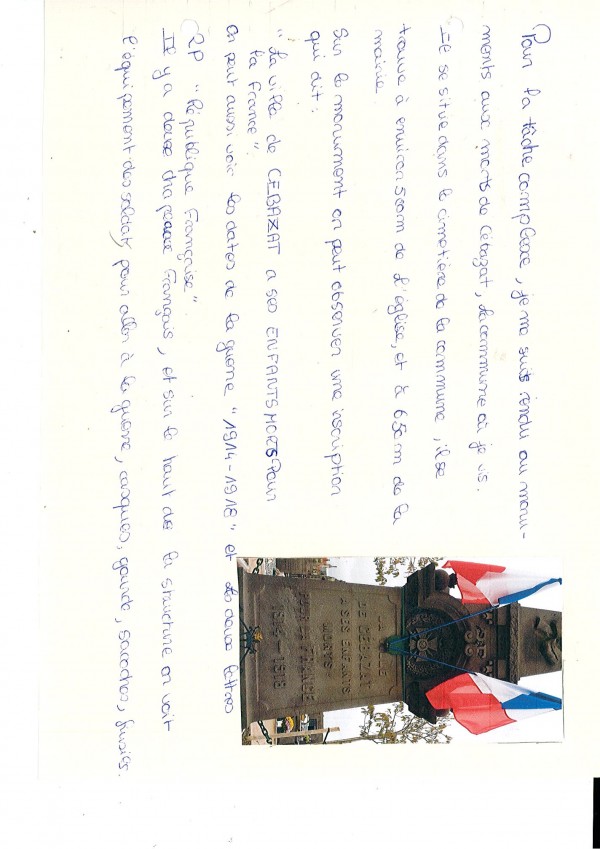 Pour la tâche complexe, je me suis rendu au monu-
ments aux morts de Cébazat, la commune où je vis.
Il se situe dans le cimetière de la commune, il se
trouve à environ 500m de l'église, et à 650m de la
mairie.
Sur le monument on peut observer une inscription
qui dit :
"La ville de CEBAZAT a ses ENFANTS MORTS Pour
la France".
on peut aussi voir les dates de la guerre "1914-1918" et les deux lettres
RP "République Française"
Il y a deux drapeaux Français, et sur le haut de la structure on voit
l'équipement des soldats pour aller à la guerre, casques, gourde, sacoches, fusils.
LA VILLE
DE CEBAZAT
A SES ENFANTS
MORTS
POUR LA FRANCE
1914-1918